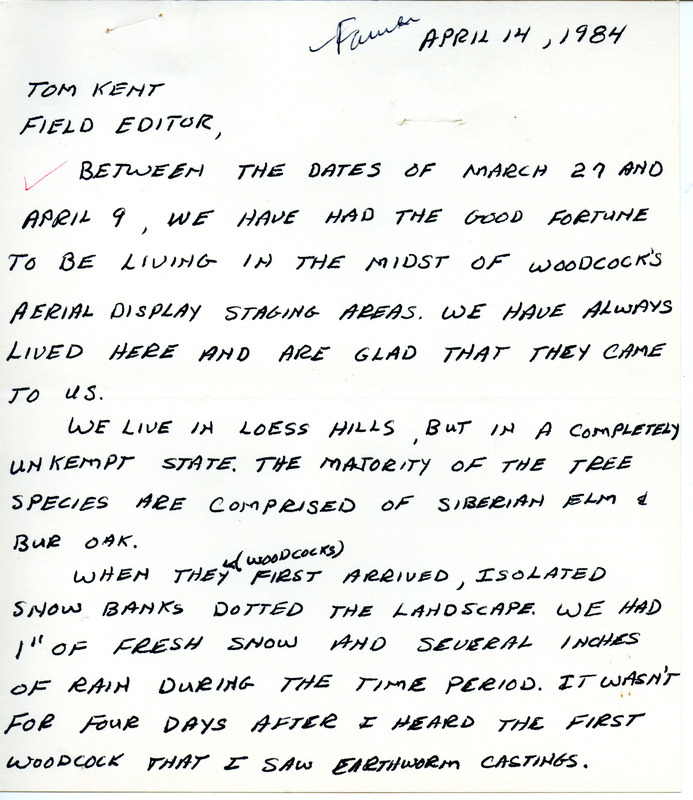 APRIL 14, 1984
TOM KENT
FIELD EDITOR,
BETWEEN THE DATES OF MARCH 27 AND
APRIL 9, WE HAVE HAD THE GOOD FORTUNE
TO BE LIVING IN THE MIDST OF WOODCOCK'S
AERIAL DISPLAY STAGING AREAS. WE HAVE ALWAYS
LIVED HERE AND ARE GLAD THAT THEY CAME
TO US.
WE LIVE IN LOESS HILLS, BUT IN A COMPLETELY
UNKEMPT STATE. THE MAJORITY OF THE TREE
SPECIES ARE COMPRISED OF SIBERIAN ELM &
BUR OAK.
WHEN THEY (WOODCOCKS) FIRST ARRIVED, ISOLATED
SNOW BANKS DOTTED THE LANDSCAPE. WE HAD
1" OF FRESH SNOW AND SEVERAL INCHES
OF RAIN DURING THE TIME PERIOD. IT WASN'T
FOR FOUR DAYS AFTER I HEARD THE FIRST
WOODCOCK THAT I SAW EARTHWORM CASTINGS.